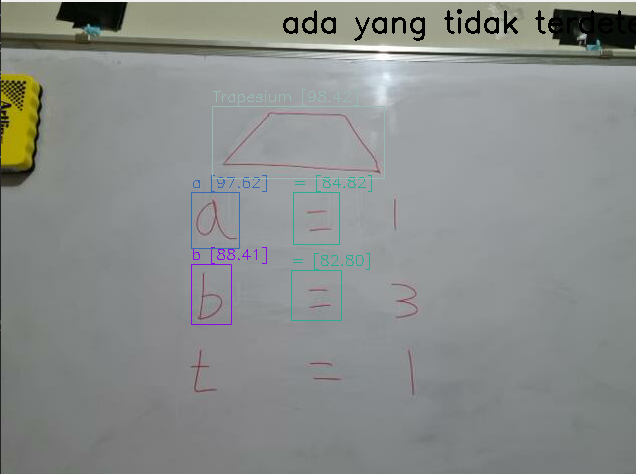 ada yang tidak terdete
Trapesium [98.42]
a [97.62] = [84.82]
a = 1
b [88.41] = [82.80]
b = 3
t = 1